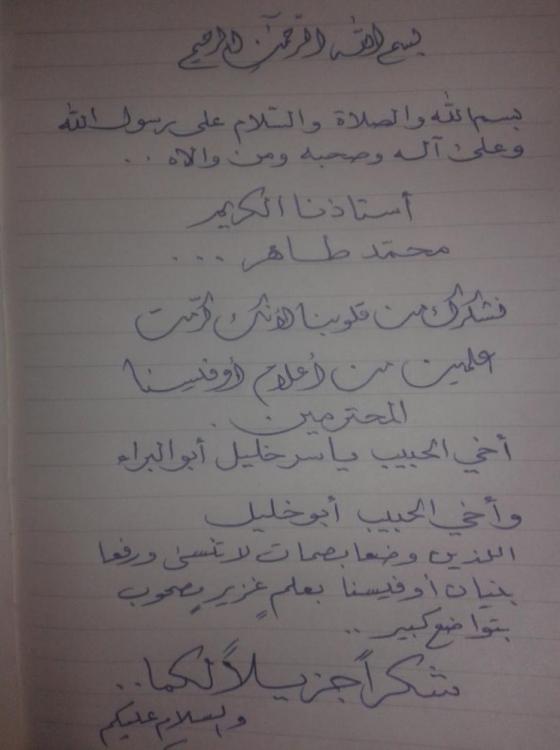 بسم الله الرّحمن الرحيم
بسم الله والصلاة والسّلام على رسول الله
وعلى آله وصحبه ومن والاه ...
أستاذنا الكريم
محمّد طاهر ...
نشكرك من قلوبنا لأنك كرّمت
علمين من أعلام أوفيسنا
المحترمين .
أخي الحبيب ياسر خليل أبو البراء
وأخي الحبيب أبو خليل
اللذين وضعا بصمات لا تنسى ورفعا
بنيان أوفيسنا بعلمٍ غزيرٍ مصحوب
بتواضع كبير ..
شكراً جزيلاً لكما ..
والسلام عليكم